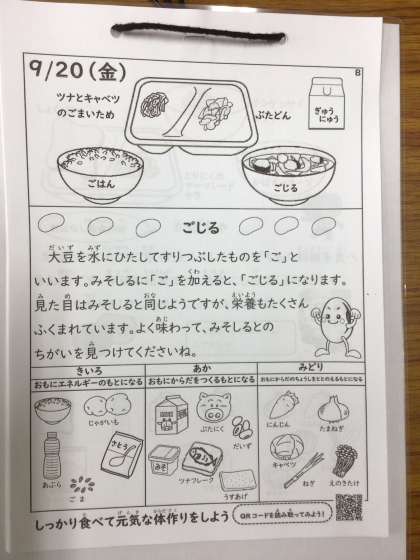 9/20(金)
8
ツナとキャベツ
のごまいため
ぶたどん
ぎゅう
にゅう
ごはん
ごじる
ごじる
大豆を水にひたしてすりつぶしたものを「ご」と
いいます。みそしるに「ご」を加えると、「ごじる」になります。
見た目はみそしると同じようですが、栄養もたくさん
ふくまれています。よく味わって、みそしるとの
ちがいを見つけてくださいね。
きいろ
おもにエネルギーのもとになる
じゃがいも
さとう
あぶら
ごま
あか
おもにからだをつくるもとになる
ぶたにく
だいず
みそ
ツナフレーク
うすあげ
みどり
おもにからだのちょうしをととのえるもとになる
にんじん
たまねぎ
キャベツ
ねぎ
えのきたけ
しっかり食べて元気な体作りをしよう
QRコードを読み取ってみよう!